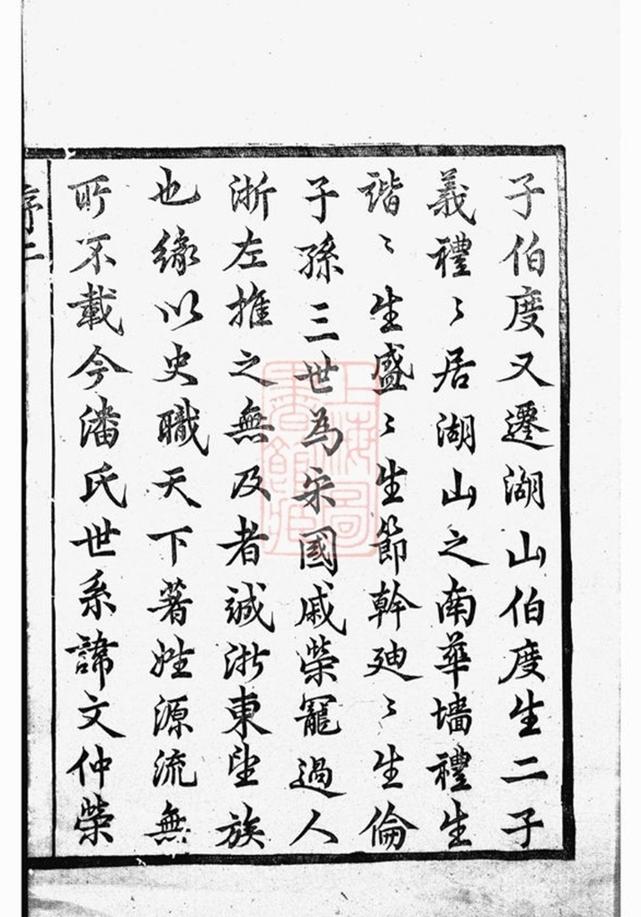 子伯度又遷湖山伯度生二子
義禮〻居湖山之南華墻禮生
諧〻生盛〻生節幹廸〻生倫
子孫三世為宋國戚榮寵過人
浙左推之無及者誠浙東望族
也緣以史職天下著姓源流無
所不載今潘氏世系諱文仲榮
序二
上海圖書館藏